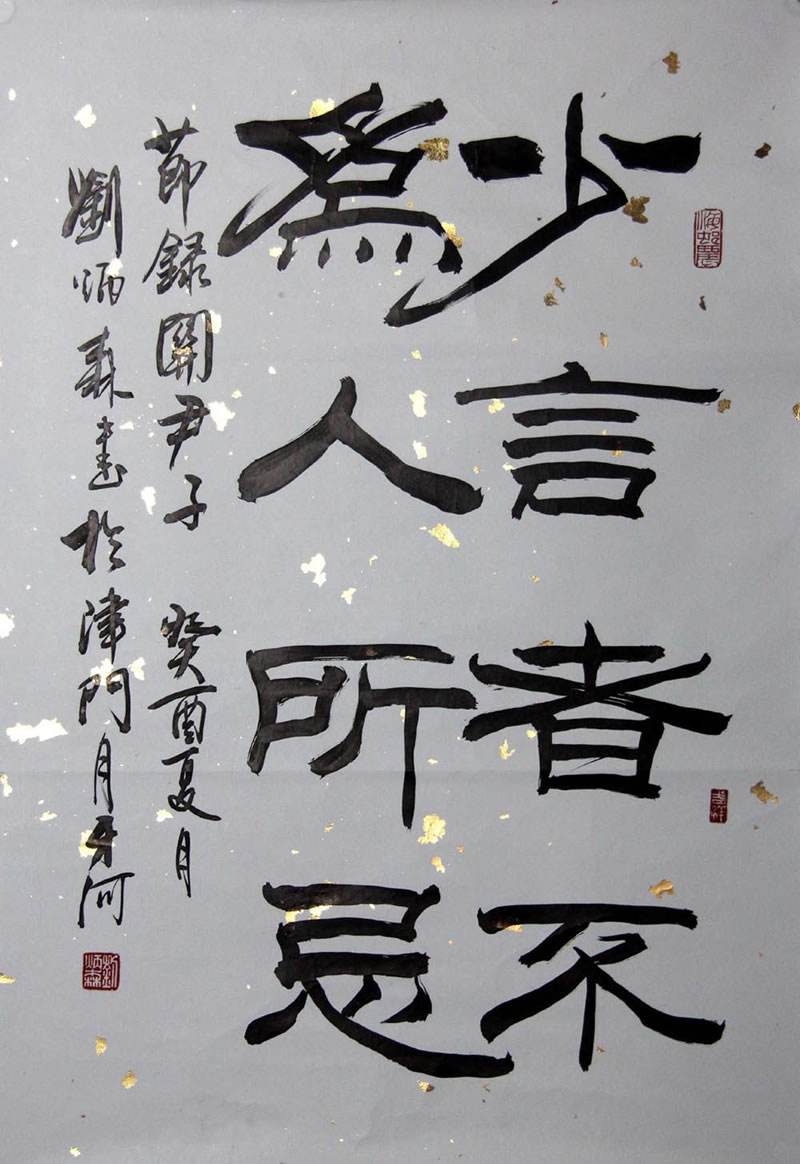 少言者不
爲人所忌
節録關尹子 癸酉夏月
劉炳森書於津門月牙河
劉炳森